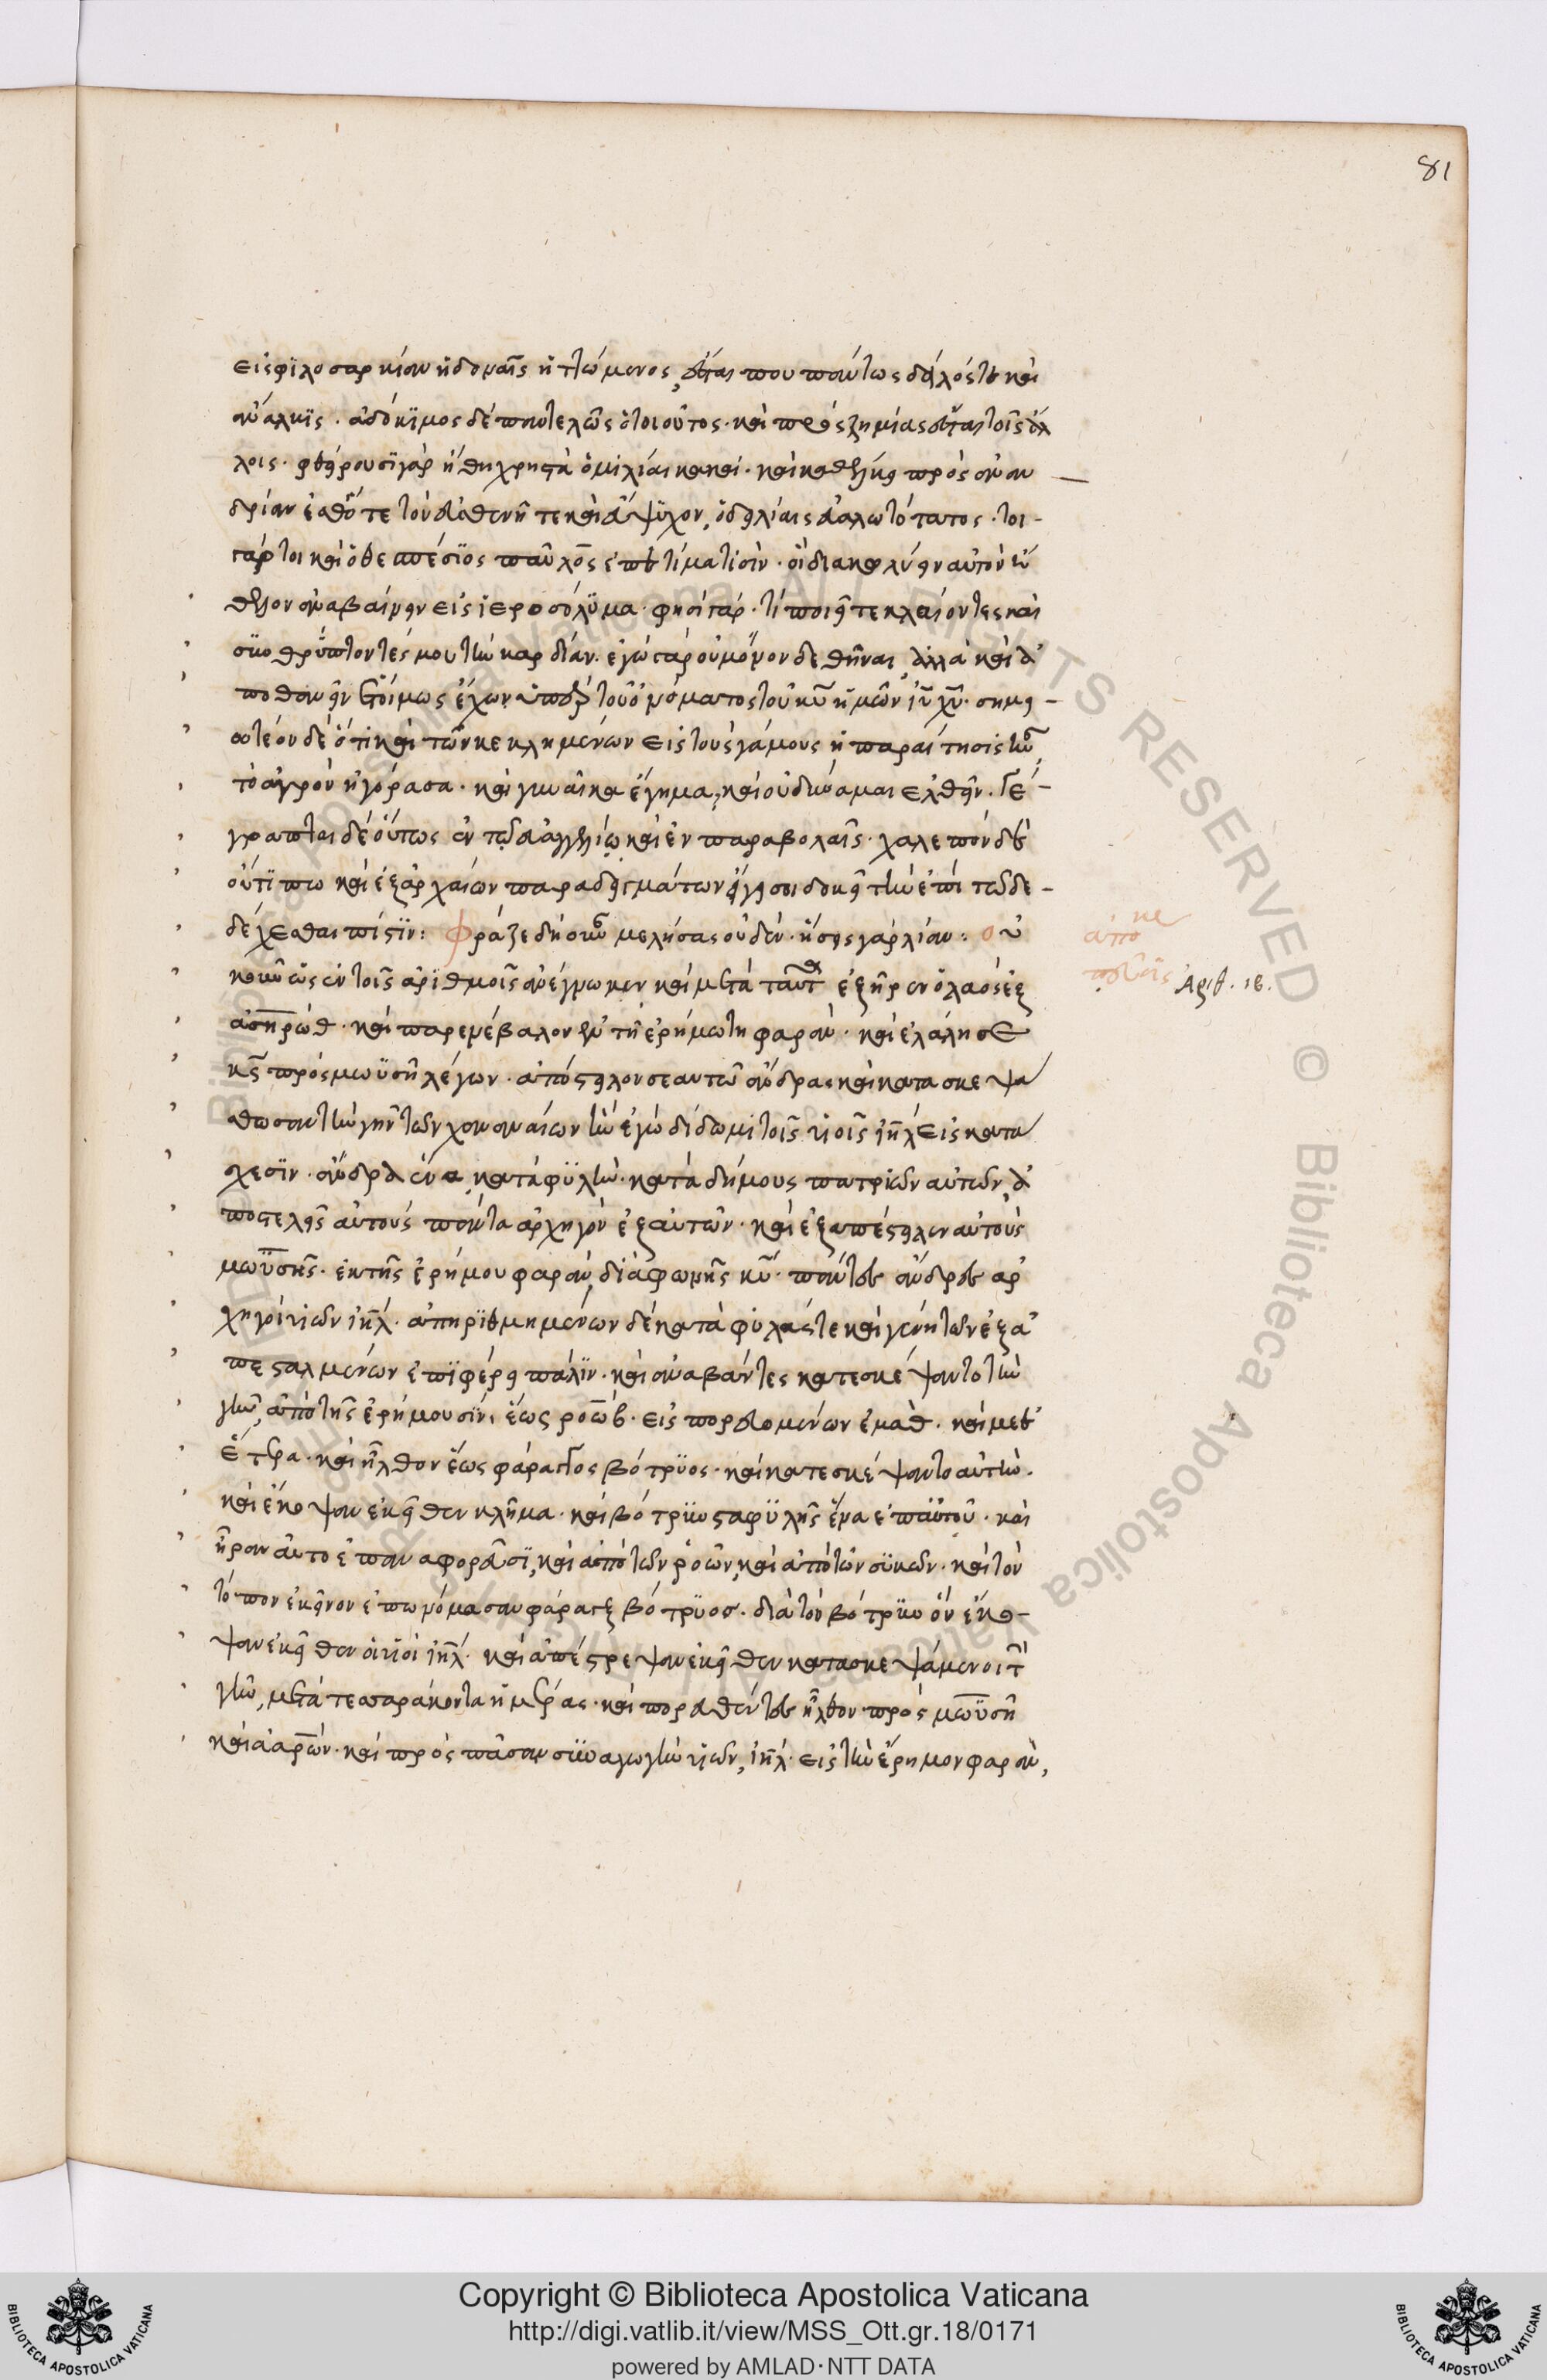 81
εἰς φιλοσαρκίαν ἡδοναῖς ἡττώμενος, ἔσται που πάντως δειλός τε καὶ
ἄναλκις. ἀδόκιμος δὲ παντελῶς ὁ τοιοῦτος. καὶ πρὸς ζημίας ἔσται τοῖς ἄλ
λοις. φθείρουσι γὰρ ἤθη χρηστὰ ὁμιλίαι κακαί. καὶ καθέλκει πρὸς ἀναν
δρίαν ἔσθ' ὅτε τὸν ἀσθενῆ τε καὶ ἄψυχον, ὁ δειλίαις ἁλωτότατος. τοι-
γάρτοι καὶ ὁ θεσπέσιος παῦλος ἐπετίμα τισὶν. οἳ διακωλύειν αὐτὸν ἤ
θελον ἀναβαίνειν εἰς ἱεροσόλυμα. φησὶ γάρ. τί ποιεῖτε κλαίοντες καὶ
συνθρύπτοντές μου τὴν καρδίαν. ἐγὼ γὰρ οὐ μόνον δεθῆναι, ἀλλὰ καὶ ἀ
ποθανεῖν ἑτοίμως ἔχων ὑπὲρ τοῦ ὀνόματος τοῦ κυ ἡμῶν ιυ χυ. σημει-
ωτέον δὲ ὅτι καὶ τῶν κεκλημένων εἰς τοὺς γάμους ἡ παραίτησις ἦν,
τὸ ἀγρὸν ἠγόρασα. καὶ γυναῖκα ἔγημα, καὶ οὐ δύναμαι ἐλθεῖν. γέ-
γραπται δὲ οὕτως ἐν τῷ εὐαγγελίῳ καὶ ἐν παραβολαῖς. χαλεπὸν δὲ
οὔτι πω καὶ ἐξ ἀρχαίων παραδειγμάτων εἴ γε σοι δοκεῖ τὴν ἐπὶ τῷδε-
δέχεσθαι πίστιν: Φράζε δὴ οὖν μελήσας οὐδέν. ἥσεις γὰρ λίαν: οὐ
κοῦν ὡς ἐν τοῖς ἀριθμοῖς ἀνέγνωμεν καὶ μετὰ ταῦτα ἐξῆρεν ὁ λαὸς ἐξ
ἀσηρώθ. καὶ παρενέβαλον ἐν τῇ ἐρήμω τη φαράν. καὶ ἐλάλησε
κς πρὸς μωϋσῆ λέγων. ἀπόστειλον σεαυτῶ ἄνδρας καὶ κατασκεψά
σθωσαν τὴν γῆν τῶν χαναναίων ἣν ἐγὼ δίδωμι τοῖς υἱοῖς ιηλ εἰς κατά
σχεσιν. ἄνδρα ἕνα κατὰ φυλὴν. κατὰ δήμους πατριῶν αὐτῶν, ἀ
ποστελεῖς αὐτοὺς πάντα ἀρχηγὸν ἐξ αὐτῶν. καὶ ἐξαπέστειλεν αὐτοὺς
μωϋσῆς. ἐκ τῆς ἐρήμου φαράν, διὰ φωνῆς κυ. πάντες ἄνδρες ἀρ
χηγοὶ υἱῶν ιηλ. ἀπηριθμημένων δὲ κατὰ φυλάς τε καὶ γένη τῶν ἐξα
πεσταλμένων ἐπιφέρει πάλιν. καὶ ἀναβάντες κατεσκέψαντο τὴν
γῆν, ἀπὸ τῆς ἐρήμου σὶν, ἕως ροὼβ. εἰσπορευομένων ἐμάθ. καὶ μεθ'
ἕτερα. καὶ ἦλθον ἕως φάραγγος βότρυος. καὶ κατεσκέψαντο αὐτήν.
καὶ ἔκοψαν ἐκεῖθεν κλῆμα. καὶ βότρυν σταφυλῆς ἕνα ἐπ' αὐτοῦ. καὶ
ἦραν αὐτὸ ἐπ' ἀναφορεῦσι, καὶ ἀπὸ τῶν ῥοῶν, καὶ ἀπὸ τῶν συκῶν. καὶ τὸν
τόπον ἐκεῖνον ἐπωνόμασαν φάραγξ βότρυος. διὰ τὸν βότρυν ὃν ἔκο-
ψαν ἐκεῖθεν οἱ υἱοὶ ιηλ. καὶ ἀπέστρεψαν ἐκεῖθεν κατασκεψάμενοι τὴν
γῆν, μετὰ τεσσαράκοντα ἡμέρας. καὶ πορευθέντες ἦλθον πρὸς μωϋσῆ
καὶ ἀαρών. καὶ πρὸς πᾶσαν συναγωγὴν υἱῶν, ιηλ. εἰς τὴν ἔρημον φαράν,
κε
ἀπο
Αριθ. ιβ.
Copyright © Biblioteca Apostolica Vaticana
http://digi.vatlib.it/view/MSS_Ott.gr.18/0171
powered by AMLAD·NTT DATA
BIBLIOTECA APOSTOLICA VATICANA
BIBLIOTECA APOSTOLICA VATICANA